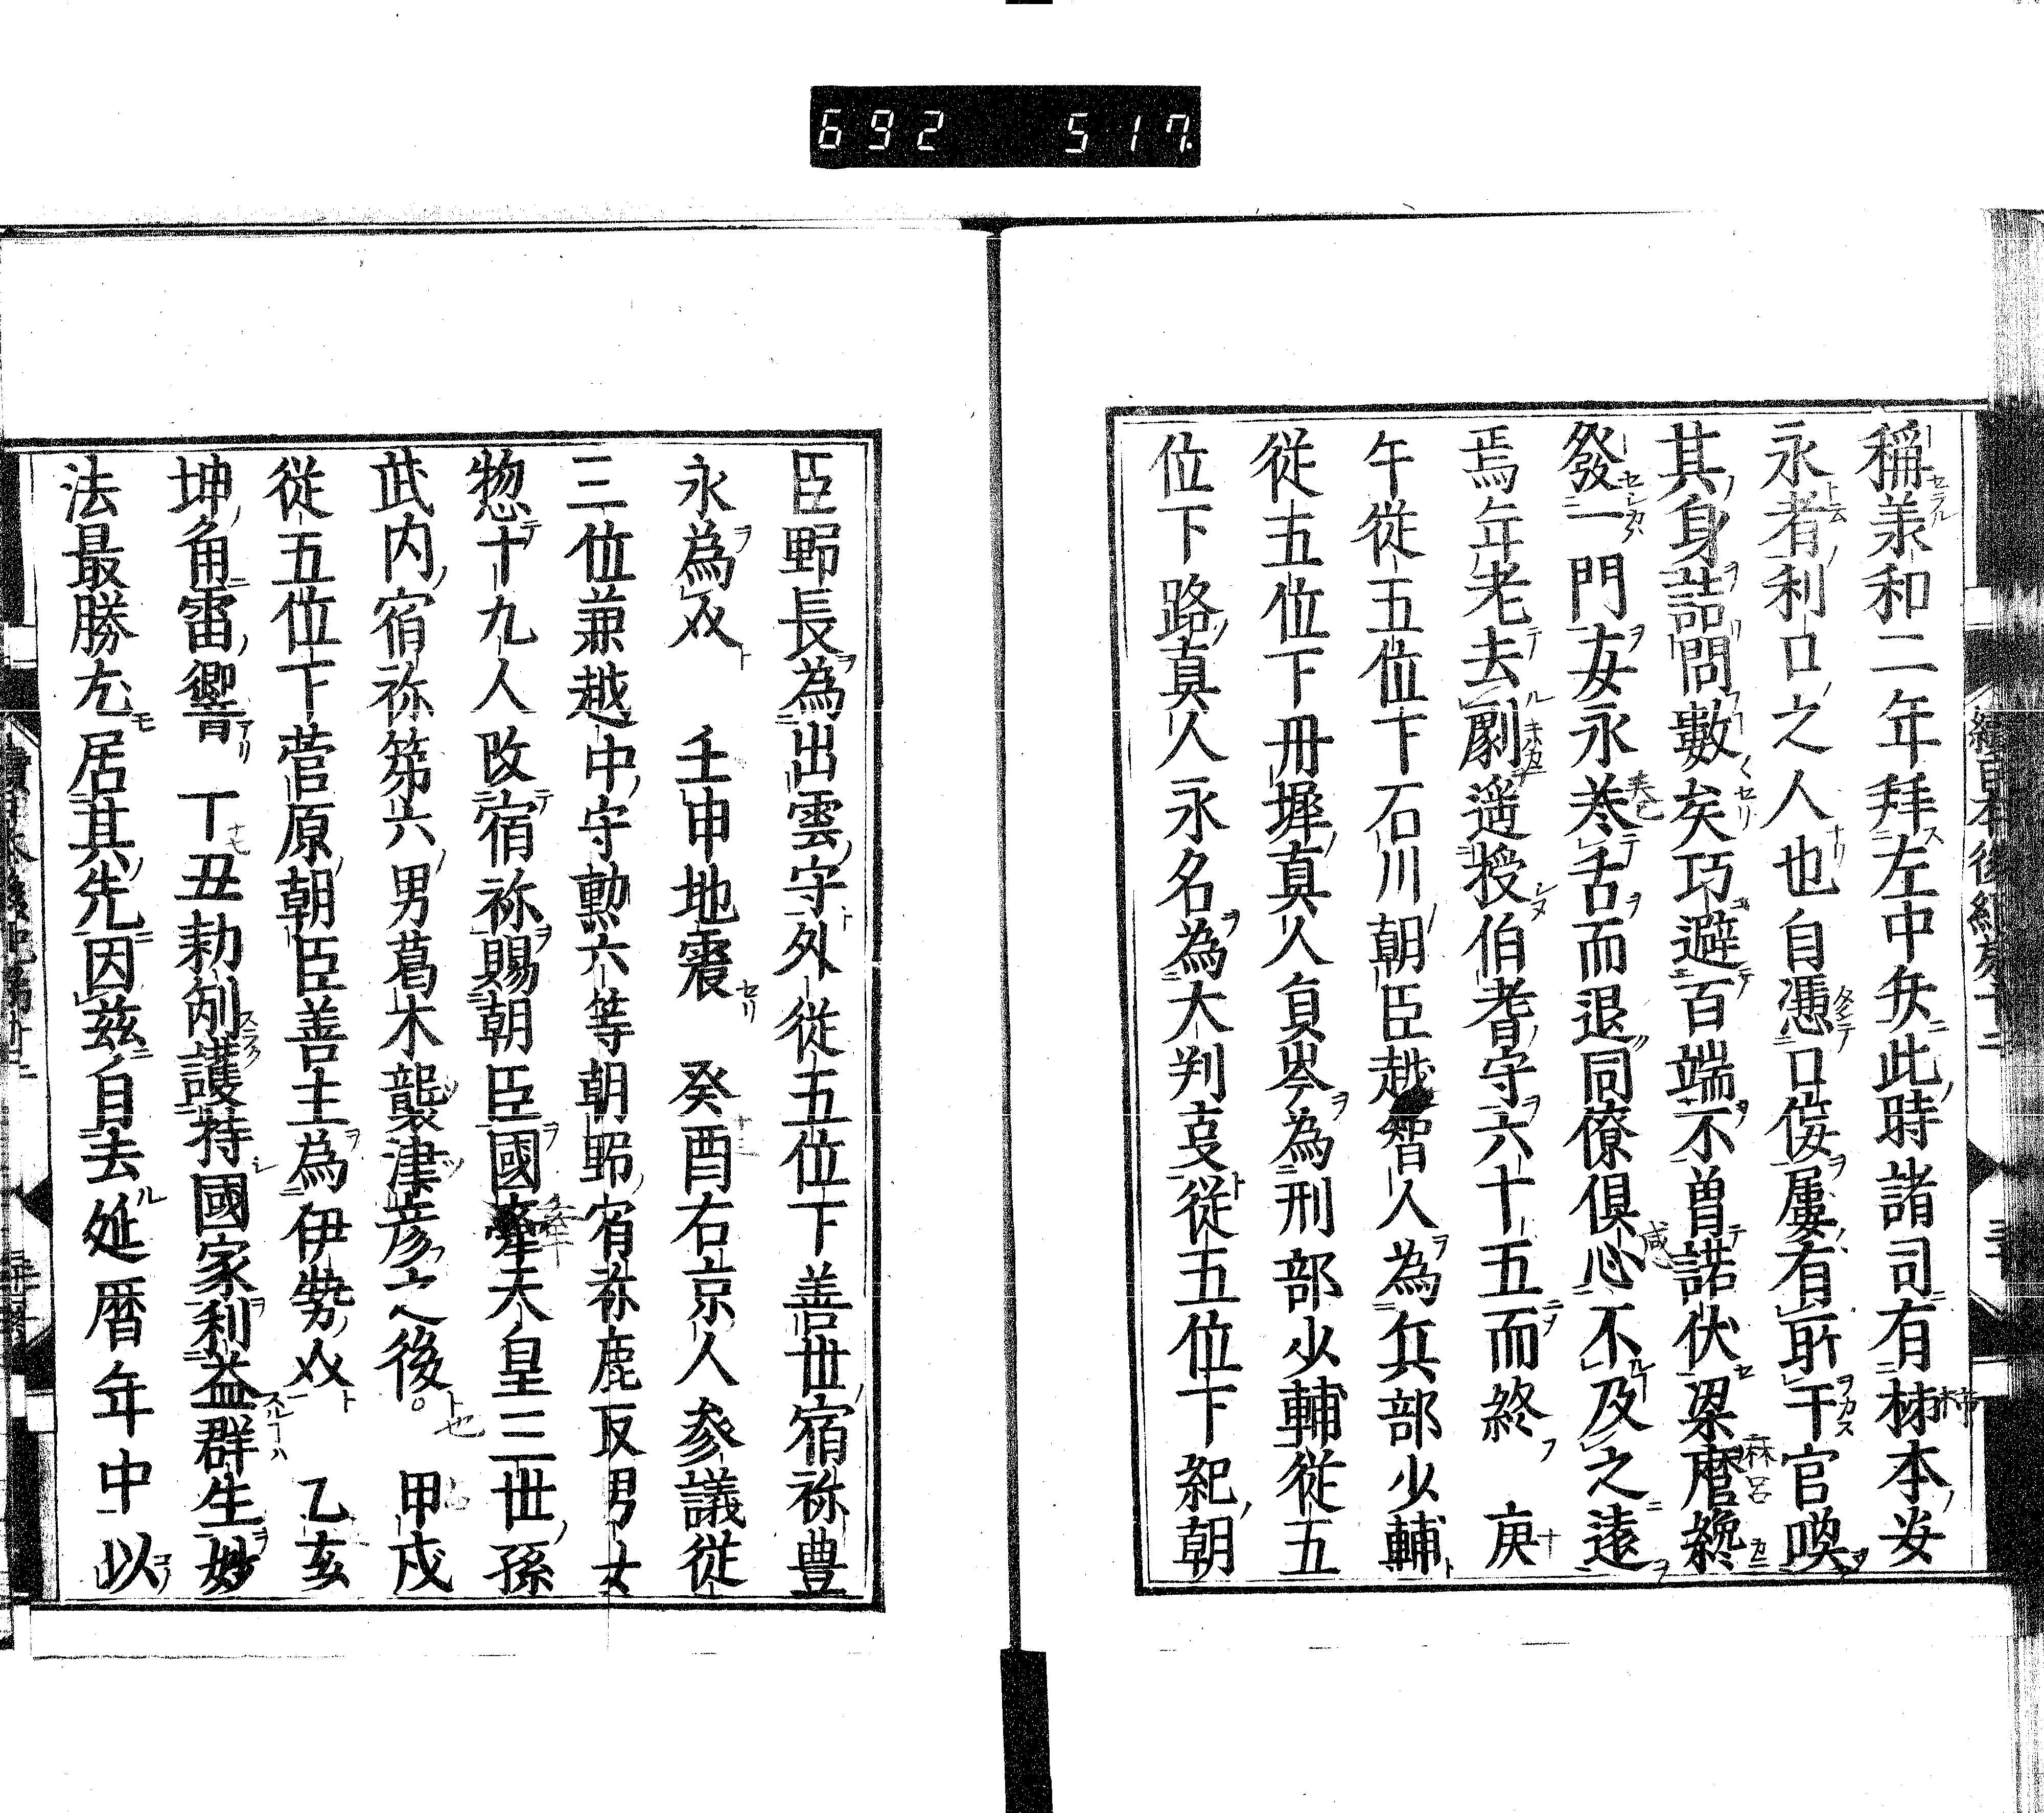 稱羕和二年拜左中矢此時諸司有㭉本安
永者利口之人也自憑口佞屢有所干官喚
其身詰問數矣巧避百端不曽諾伏梁麿纔
發一門安永巻舌而退同僚倶心不及之遠
焉年老去劇遥授伯耆守六十五而終　庚
午従五位下石川朝臣越智人為兵部少輔
従五位下丹墀真人貞岑為刑部少輔従五
位下路真人永名為大判事従五位下紀朝
臣野長為出雲守外従五位下善世宿祢豊
永為介　壬申地震　癸酉右京人参議従
三位兼越中守勲六等朝野宿祢鹿取男女
惣十九人改宿祢賜朝臣國牽天皇三世孫
武内宿祢第六男葛木襲津彦之後。甲戌
従五位下菅原朝臣善主為伊勢介　乙亥
坤角雷響　丁丑勑剏護持國家利益群生妙
法最勝尤居其先因茲自去延暦年中以
692　517